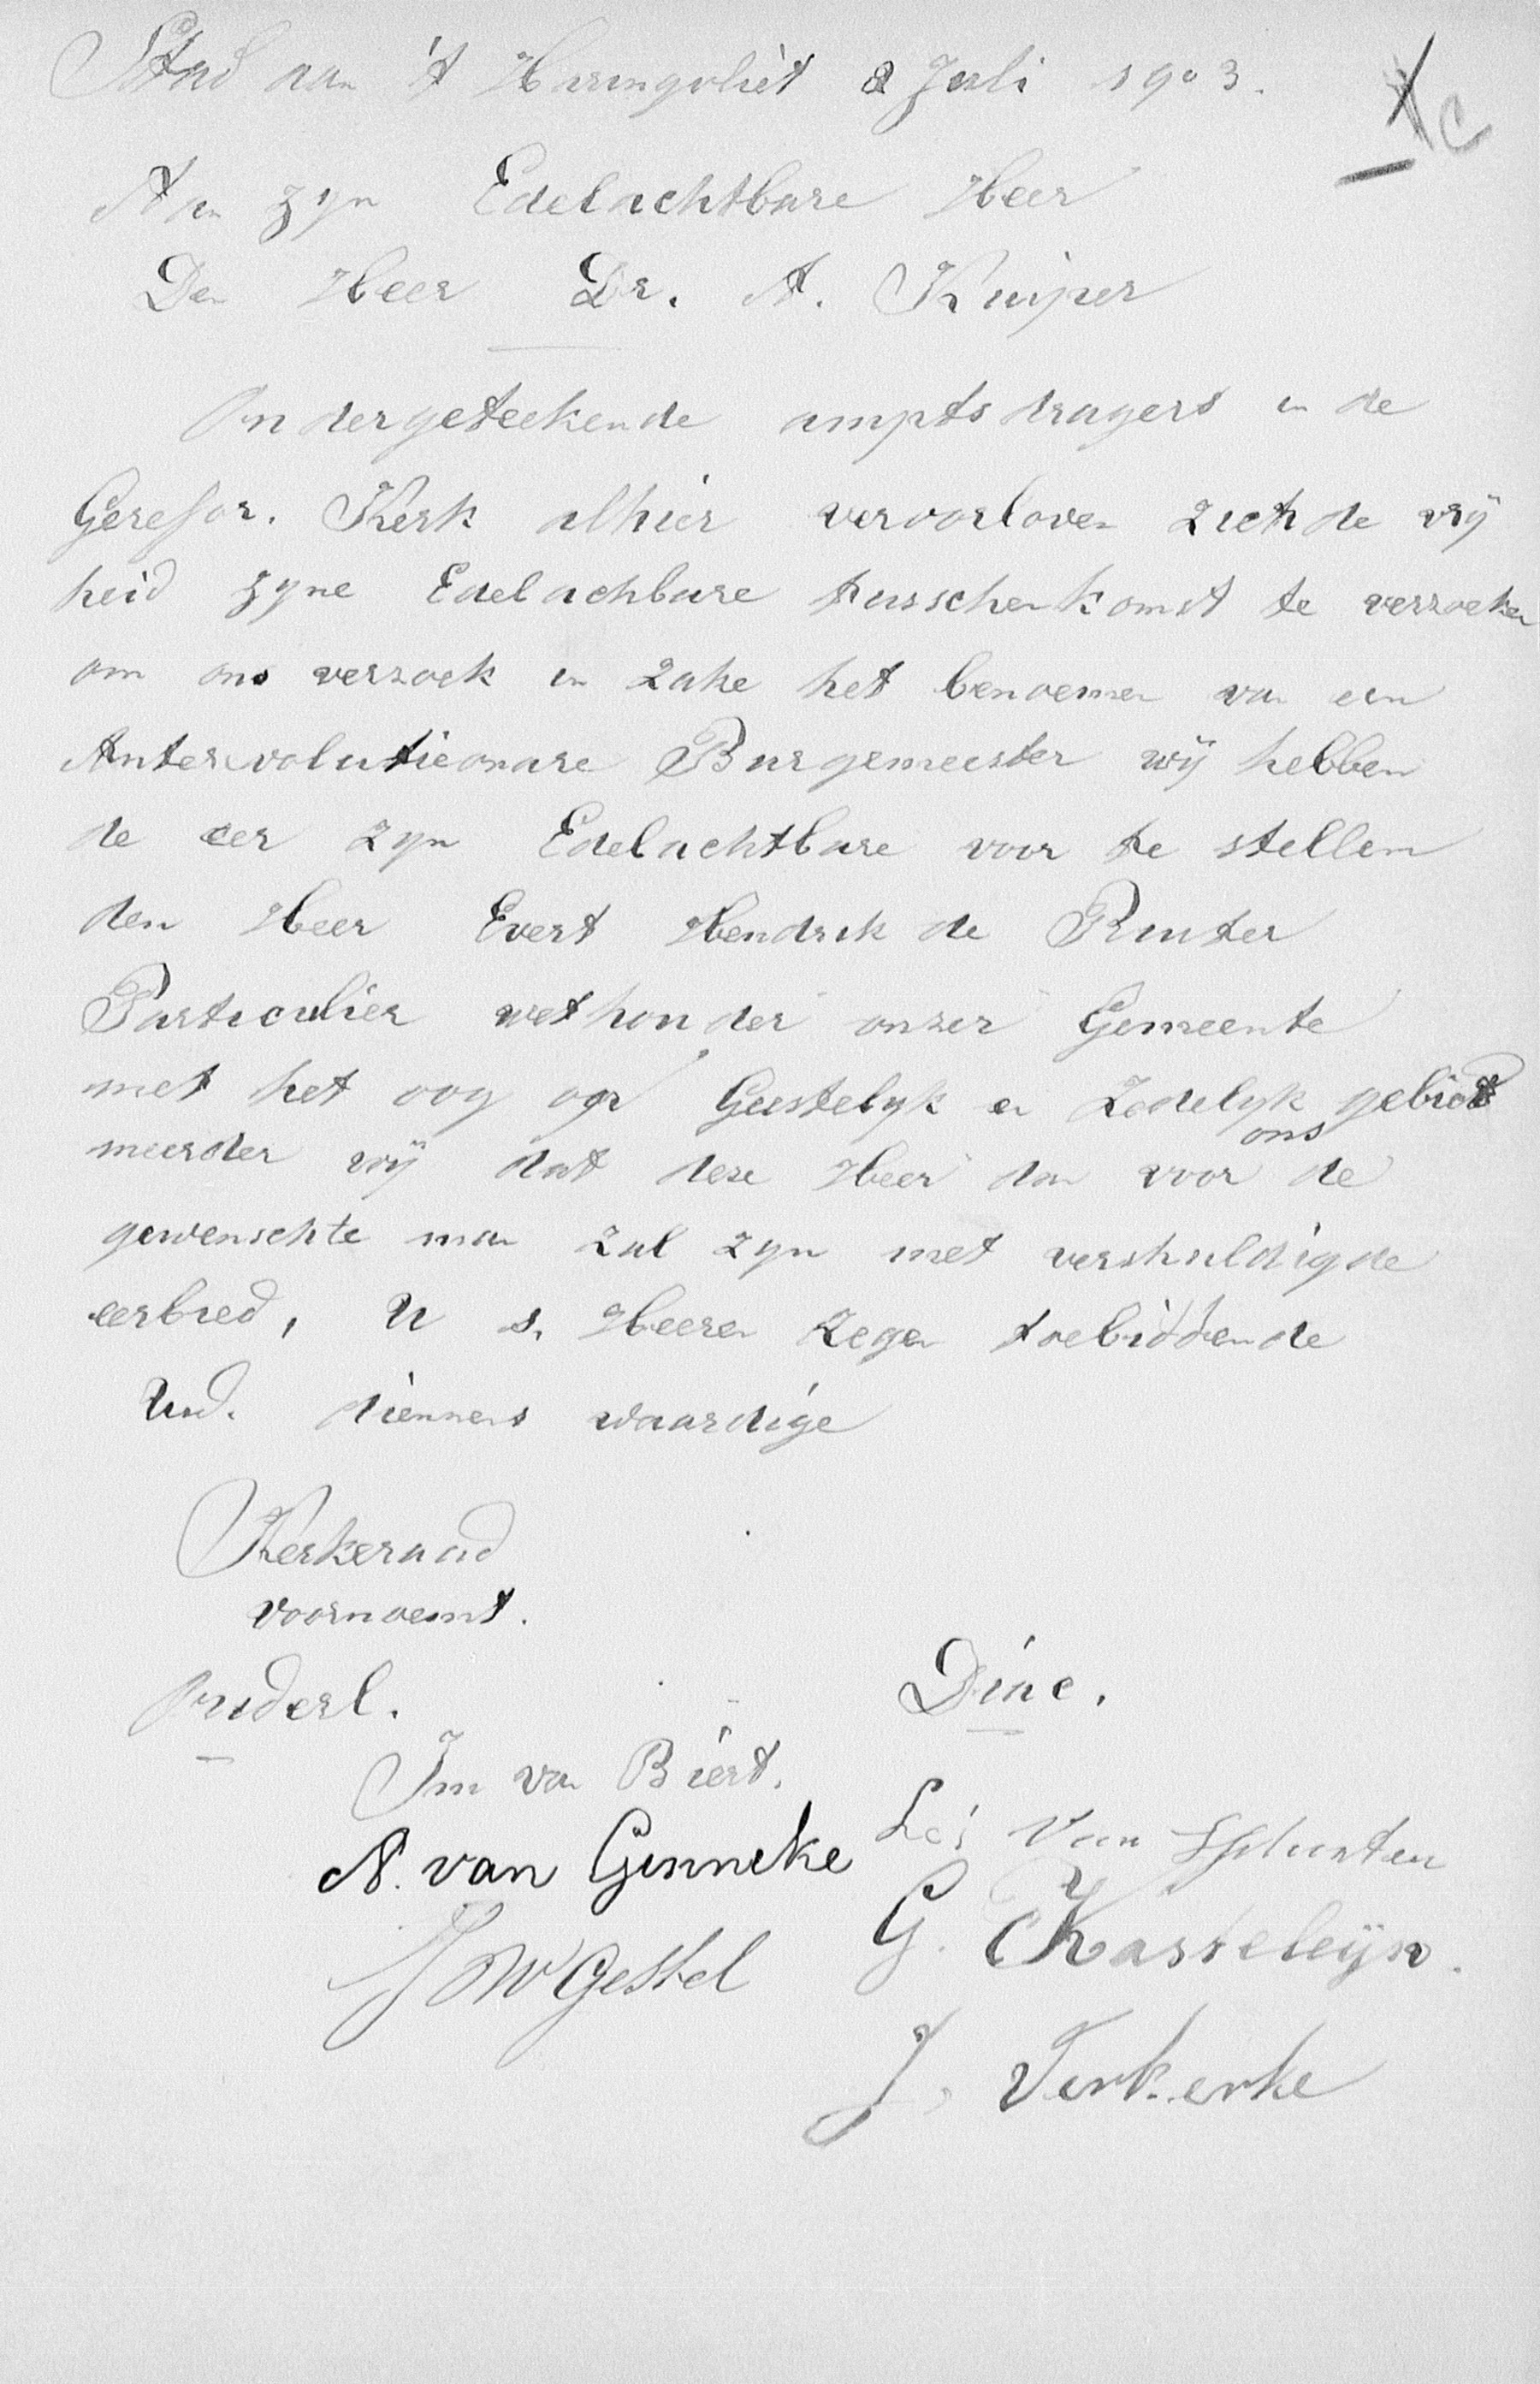 Stad aan 't Haringvliet 2 Juli 1903.
Aan zyn Edelachtbare Heer
Den Heer Dr. A. Kuiper
Ondergeteekende amptsdragers in de
Gerefor. Kerk alhier veroorloven zich de vrij
heid zyne Edelachbare tusschenkomst te verzoeken
om ons verzoek in zake het benoemen van een
Anterevolutieonare Burgemeester wij hebben
de eer zyn Edelachtbare voor te stellen
den Heer Evert Hendrik de Ruiter
Particulier wethouder onzer Gemeente
met het oog op Geestelyk en Zedelyk gebied
meerder wij dat deze Heer dan voor ons de
gewenschte man zal zyn met vershuldigde
eerbied, U s. Heeren Zegen toebiddende
Ued. dienners waardige
Kerkeraad
voornoemt.
Ouderl.
Dine.
Jm van Biert.
Ls van
N. van Genneke
G. Kasteleijn.
JMVGestel
J. Verkerke